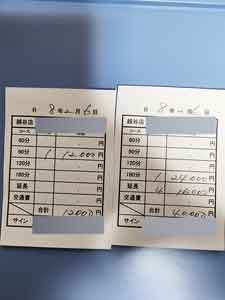 8年2月6日
越谷店
コース
60分 円
90分 1 12,000円
120分 円
180分 円
延長 円
交通費 円
合計 12000円
サイン
8年 月 日
越谷店
コース
60分 円
90分 円
120分 円
180分 1 24,000円
延長 4 16,000円
交通費 円
合計 40,000円
サイン